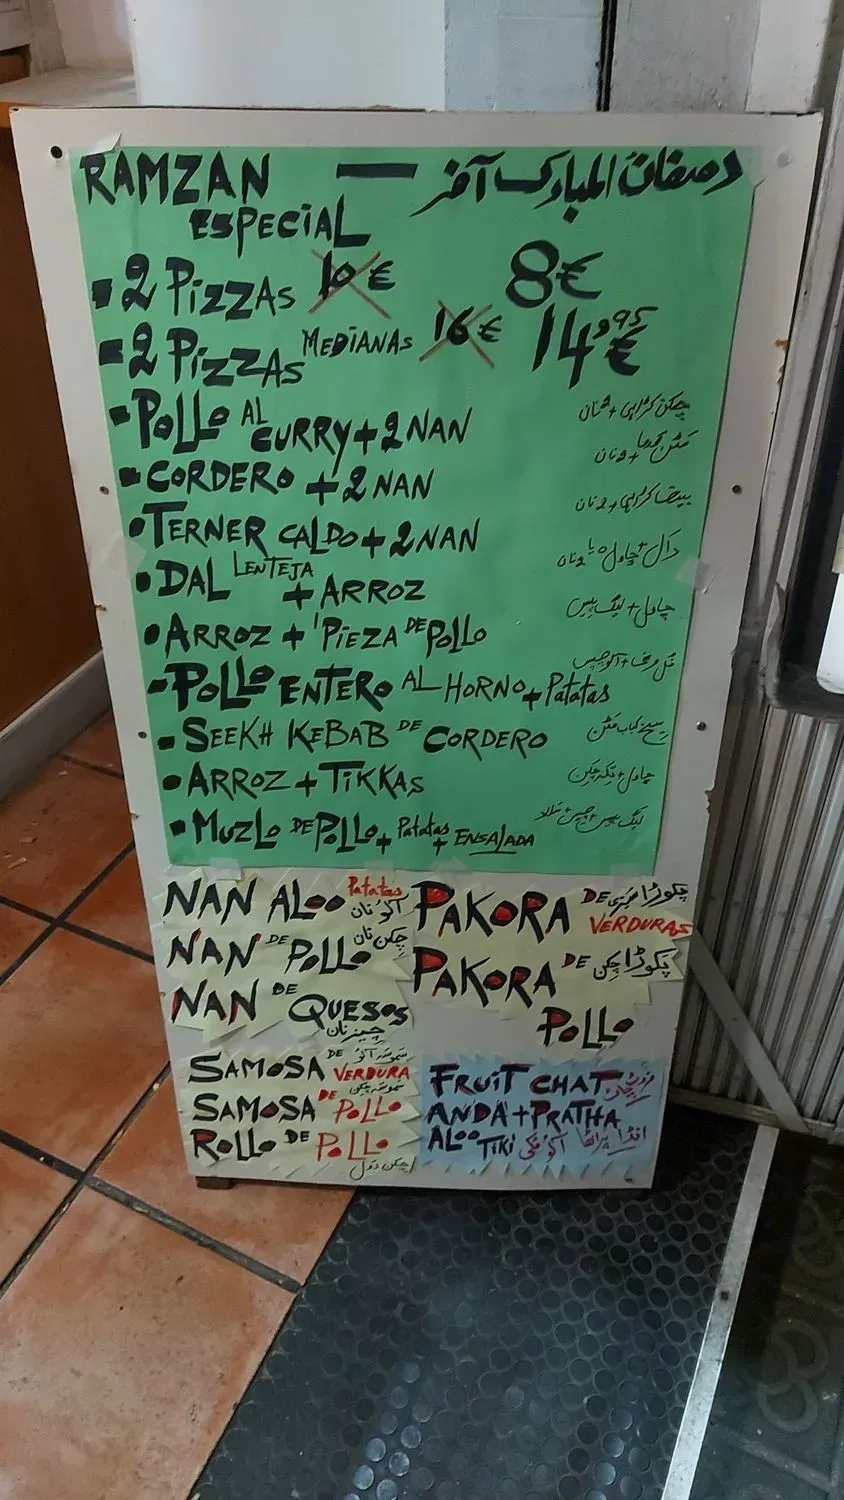 RAMZAN — رمضان المبارک آفر
ESPECIAL
- 2 PIZZAS 10 € 8€
- 2 PIZZAS MEDIANAS 16 € 14,95 €
- POLLO AL CURRY + 2 NAN چکن کڑاہی + 2 نان
- CORDERO + 2 NAN مٹن قورما + 2 نان
• TERNER CALDO + 2 NAN + 2 نان
• DAL LENTEJA + ARROZ دال + چاول یا 2 نان
• ARROZ + 1 PIEZA DE POLLO چاول + لیگ پیس
- POLLO ENTERO AL HORNO + Patatas
- SEEKH KEBAB DE CORDERO سیخ کباب مٹن
• ARROZ + TIKKAS چاول + تکہ چکن
• MUZLO DE POLLO + Patatas + ENSALADA لیگ پیس + چپس + سلاد
NAN ALOO Patatas آلو نان
NAN DE POLLO چکن نان
NAN DE QUESOS
چیز نان
PAKORA DE VERDURAS پکوڑا سبزی
PAKORA DE POLLO پکوڑا چکن
SAMOSA DE VERDURA سموسہ آلو
SAMOSA DE POLLO سموسہ چکن
ROLLO DE POLLO
چکن رول
FRUIT CHAT فروٹ چاٹ
ANDA + PRATHA انڈا پراٹھا
ALOO TIKI آلو ٹکی